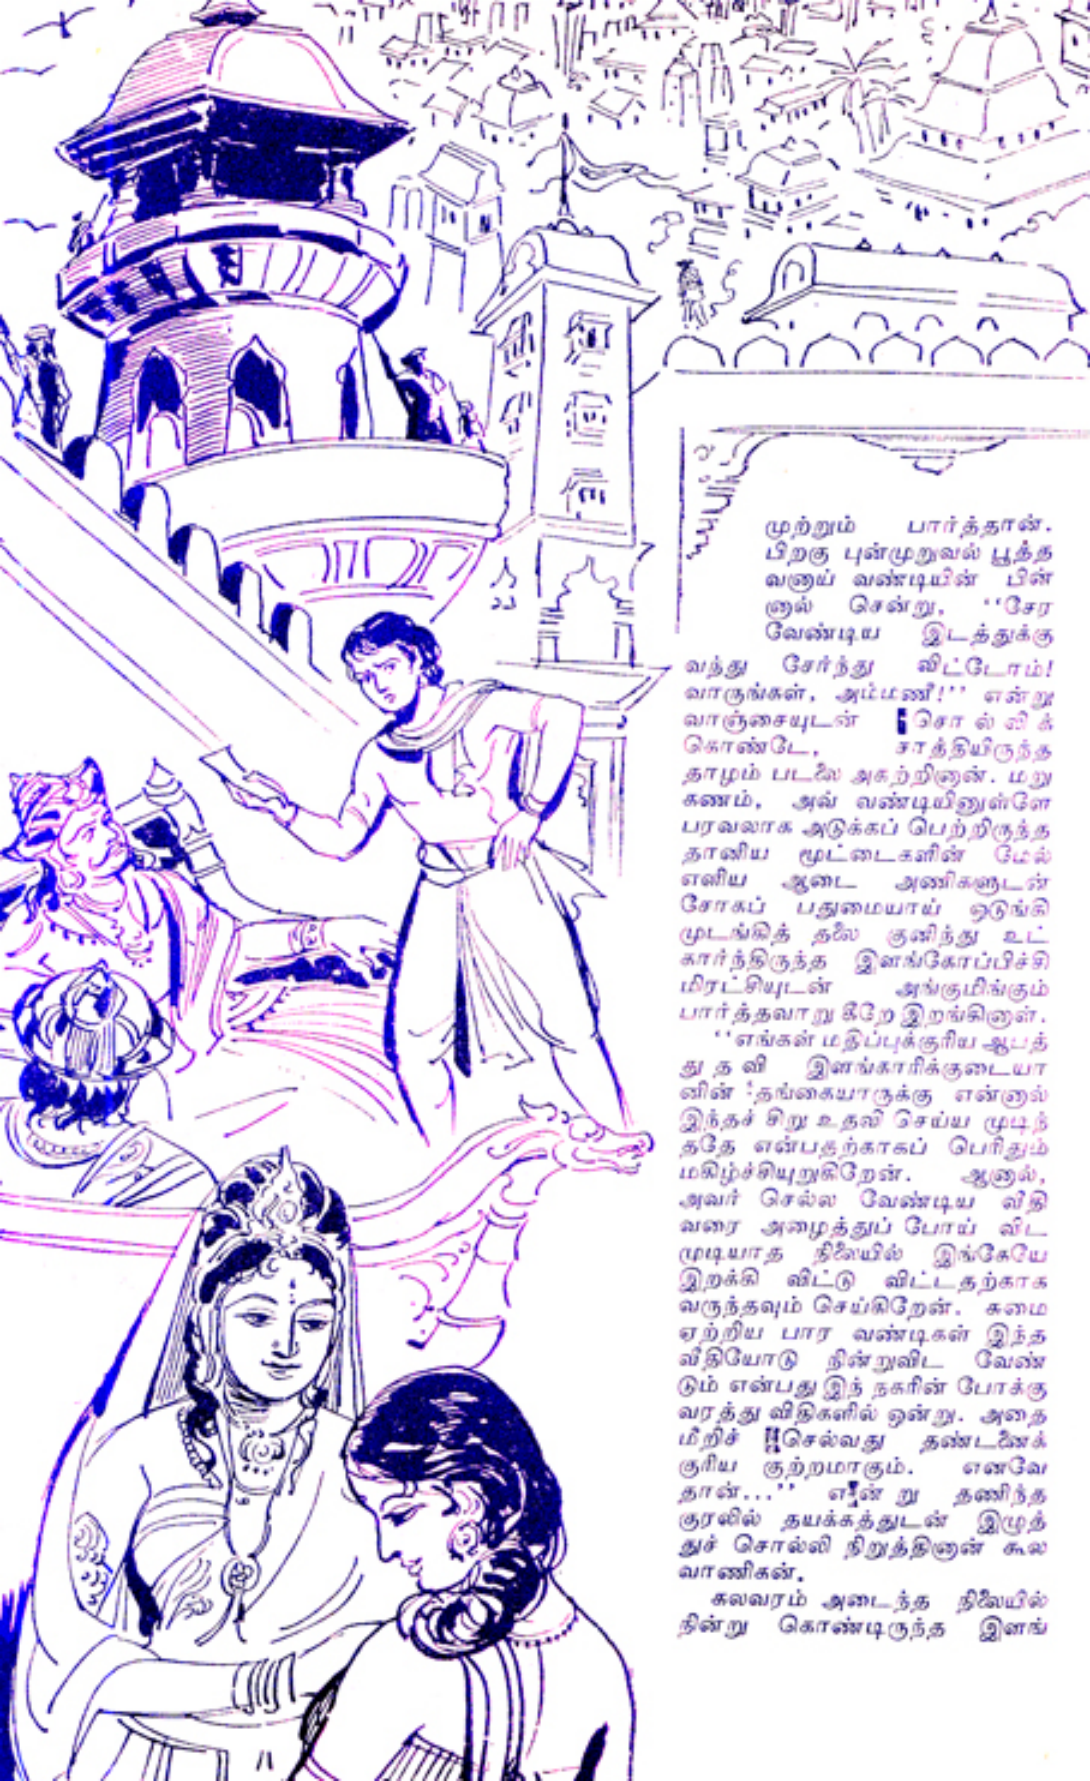 முற்றும் பார்த்தான்.
பிறகு புன்முறுவல் பூத்த
வனாய் வண்டியின் பின்
னால் சென்று, ‘‘சேர
வேண்டிய இடத்துக்கு
வந்து சேர்ந்து விட்டோம்!
வாருங்கள், அம்மணீ!’’ என்று
வாஞ்சையுடன் சொல்லிக்
கொண்டே, சாத்தியிருந்த
தாழம் படலை அகற்றினான். மறு
கணம், அவ் வண்டியினுள்ளே
பரவலாக அடுக்கப் பெற்றிருந்த
தானிய மூட்டைகளின் மேல்
எளிய ஆடை அணிகளுடன்
சோகப் பதுமையாய் ஒடுங்கி
முடங்கித் தலை குனிந்து உட்
கார்ந்திருந்த இளங்கோப்பிச்சி
மிரட்சியுடன் அங்குமிங்கும்
பார்த்தவாறு கீறே இறங்கினாள்.
‘‘எங்கள் மதிப்புக்குரிய ஆபத்
து த வி இளங்காரிக்குடையா
னின் தங்கையாருக்கு என்னால்
இந்தச் சிறு உதவி செய்ய முடிந்
ததே என்பதற்காகப் பெரிதும்
மகிழ்ச்சியுறுகிறேன். ஆனால்,
அவர் செல்ல வேண்டிய வீதி
வரை அழைத்துப் போய் விட
முடியாத நிலையில் இங்கேயே
இறக்கி விட்டு விட்டதற்காக
வருந்தவும் செய்கிறேன். சுமை
ஏற்றிய பார வண்டிகள் இந்த
வீதியோடு நின்றுவிட வேண்
டும் என்பது இந் நகரின் போக்கு
வரத்து விதிகளில் ஒன்று. அதை
மீறிச் செல்வது தண்டனைக்
குரிய குற்றமாகும். எனவே
தான்...’’ என் று தணிந்த
குரலில் தயக்கத்துடன் இழுத்
துச் சொல்லி நிறுத்தினான் கூல
வாணிகன்.
கலவரம் அடைந்த நிலையில்
நின்று கொண்டிருந்த இளங்